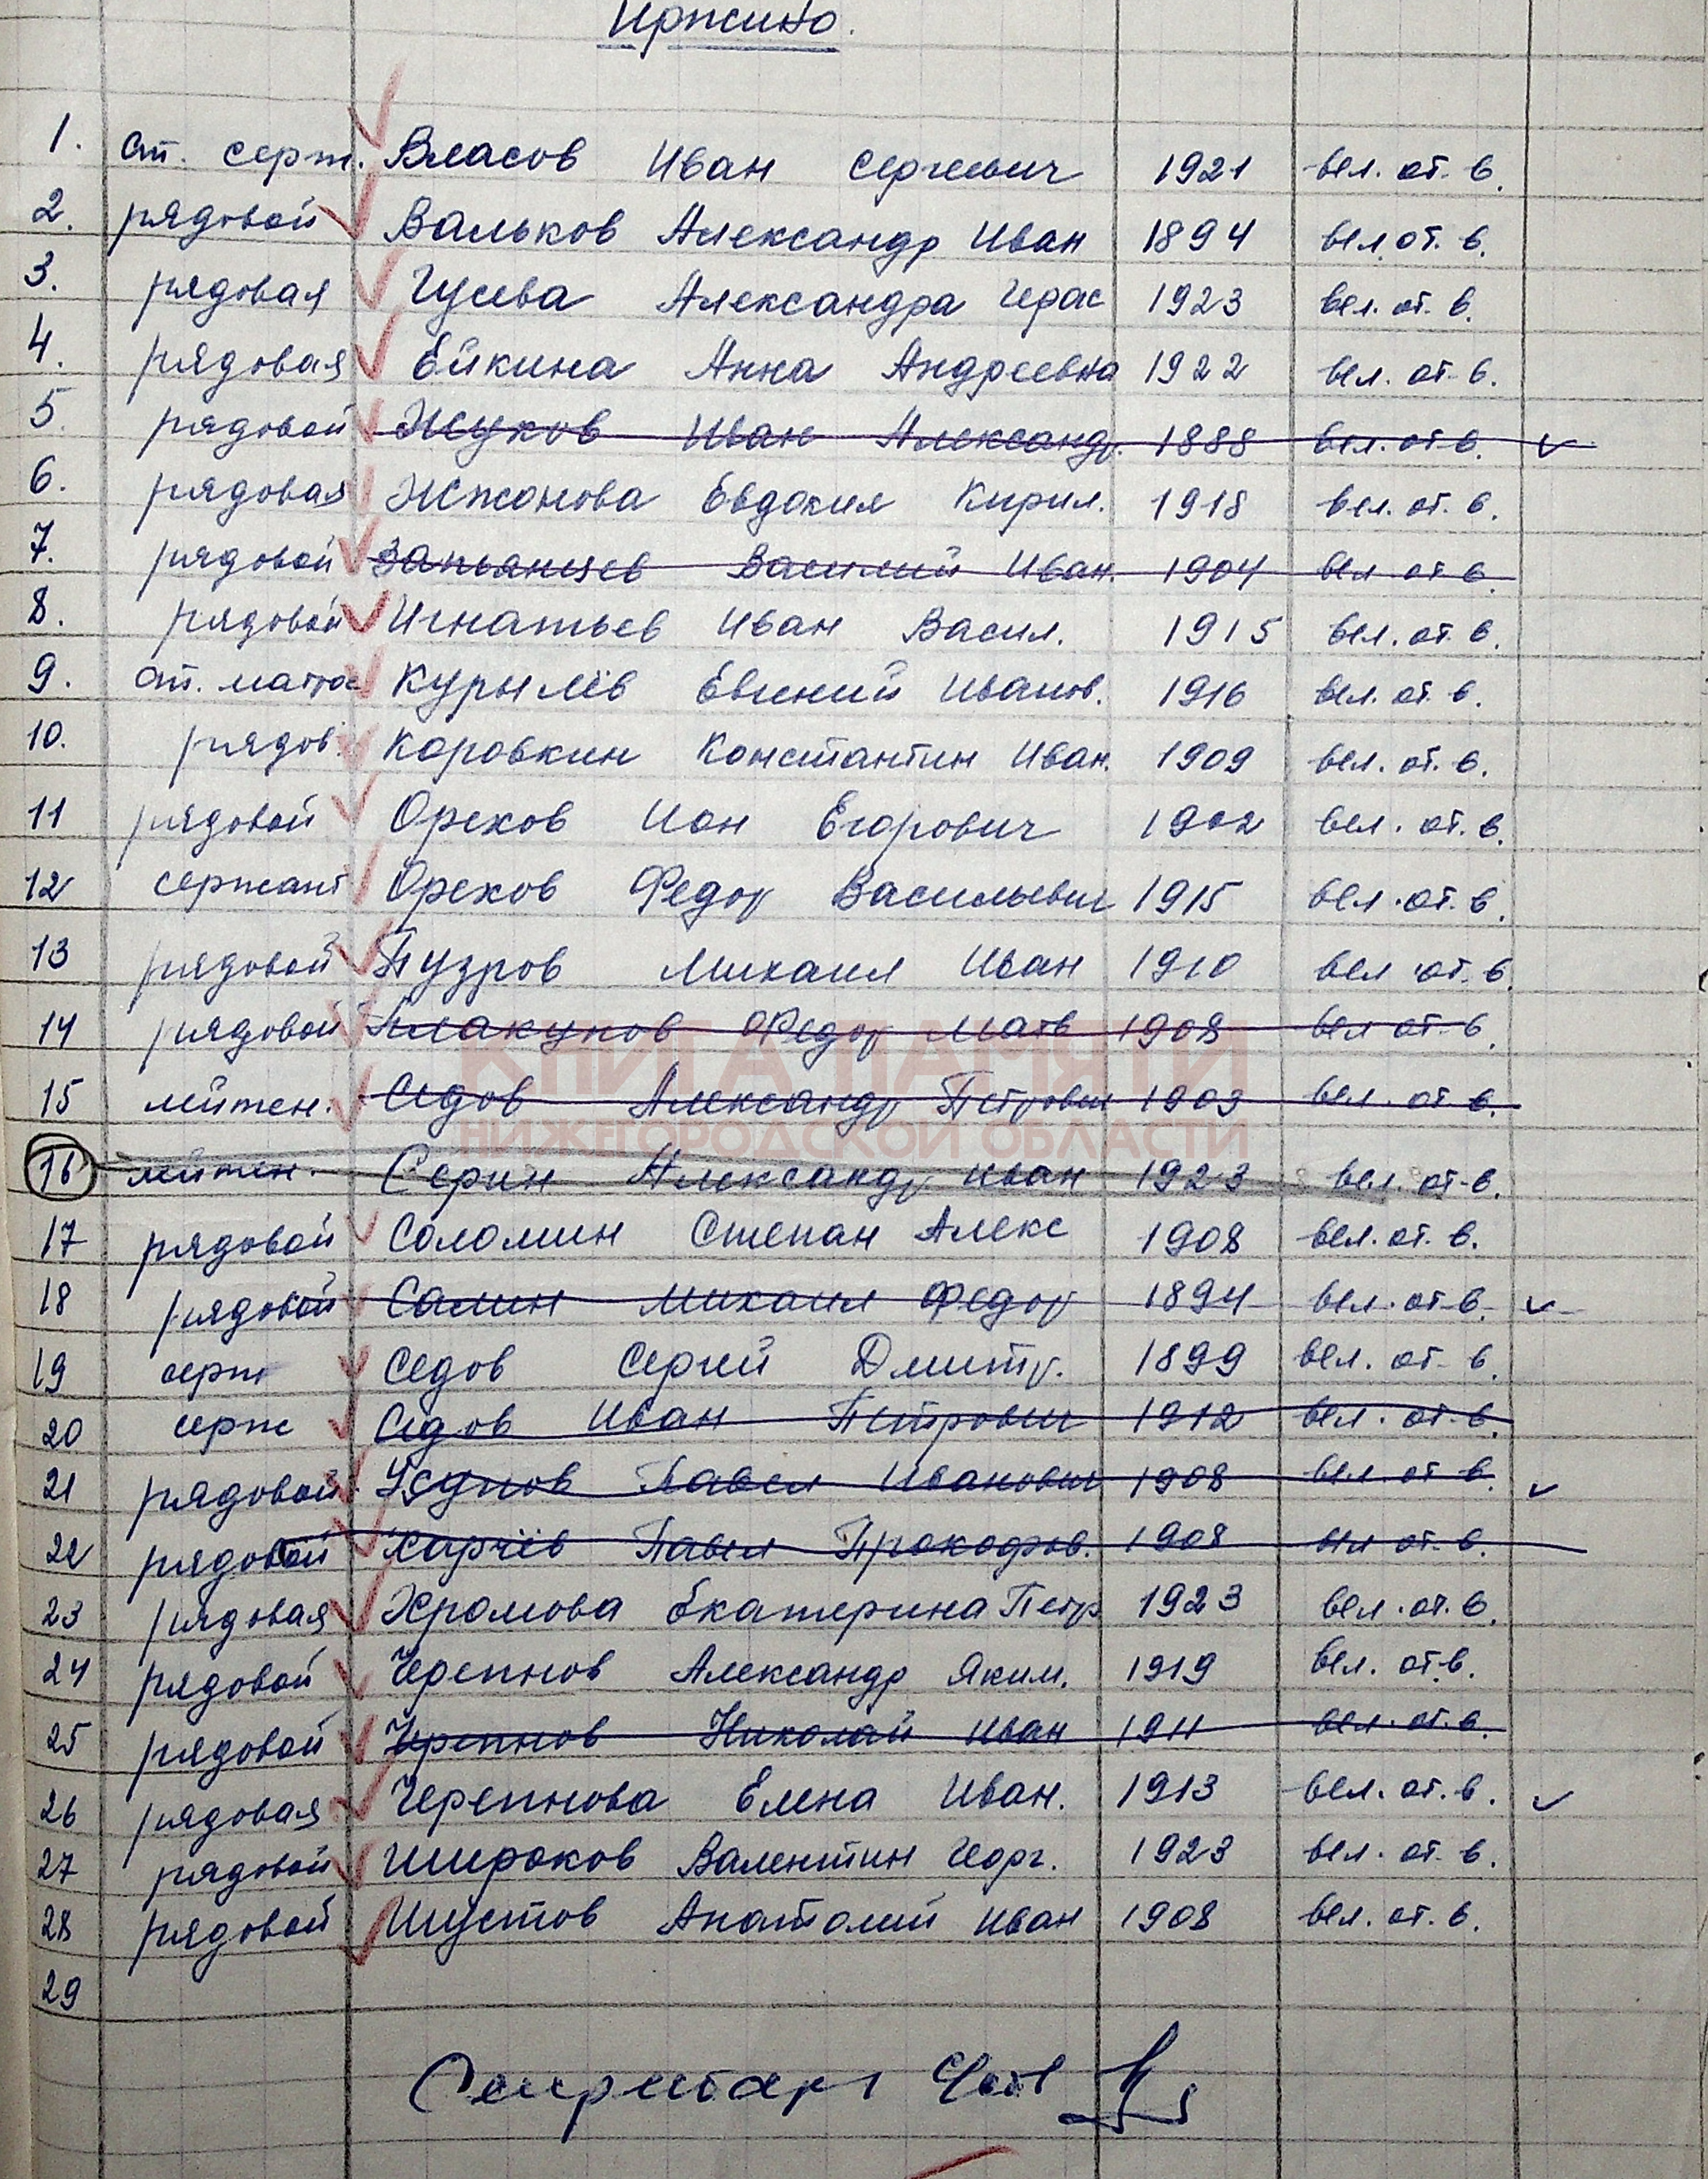 Иржино.
1. ст. серж. Власов Иван Сергеевич 1921 вел. от. в.
2. рядовой Вальков Александр Иван 1894 вел. от. в.
3. рядовая Гусева Александра Герас 1923 вел. от. в.
4. рядовая Ейкина Анна Андреевна 1922 вел. от. в.
5. рядовой Жуков Иван Александр. 1888 вел. от в.
6. рядовая Жжонова Евдокия Кирил. 1918 вел. от. в.
7. рядовой Запьянцев Василий Иван. 1904 вел от в
8. рядовой Игнатьев Иван Васил. 1915 вел. от. в.
9. ст. матрос Курылёв Евгений Иванов. 1916 вел. от. в.
10. рядов. Коровкин Константин Иван. 1909 вел. от. в.
11 рядовой Орехов Ион Егорович 1902 вел. от. в.
12 сержант Орехов Федор Васильевич 1915 вел. от. в.
13 рядовой Пузров Михаил Иван 1910 вел от. в
14 рядовой Плакунов Федор Матв 1908 вел от в.
КНИГА ПАМЯТИ
15 лейтен. Седов Александр Петрович 1903 вел. от в.
НИЖЕГОРОДСКОЙ ОБЛАСТИ
16 лейтен. Серин Александр Иван 1923 вел. от. в.
17 рядовой Соломин Степан Алекс 1908 вел. от. в.
18 рядовой Салин Михаил Федор 1894 вел. от в.
19 серж Седов Сергей Дмитр. 1899 вел. от. в.
20 серж Седов Иван Петрович 1912 вел. от. в.
21 рядовой Павел Иванович 1908 вел. от в.
22 рядовой Харчёв Павел Прокофьев. 1908 вел от. в.
23 рядовая Хромова Екатерина Петр 1923 вел. от. в.
24 рядовой Черепнов Александр Яким. 1919 вел. от. в.
25 рядовой Черепнов Николай Иван 1911 вел. от. в.
26 рядовая Черепнова Елена Иван. 1913 вел. от. в.
27 рядовой Широков Валентин Георг. 1923 вел. от. в.
28 рядовой Шустов Анатолий Иван 1908 вел. от. в.
29
Секретарь